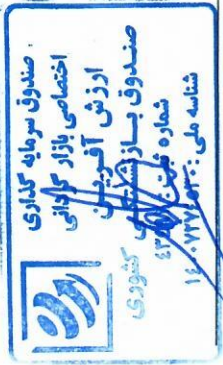 صندوق سرمایه گذاری
اختصاصی بازار گردانی
ارزش آفرین
صندوق بازنشستگی
کشوری
شماره ثبت
شناسه ملی: